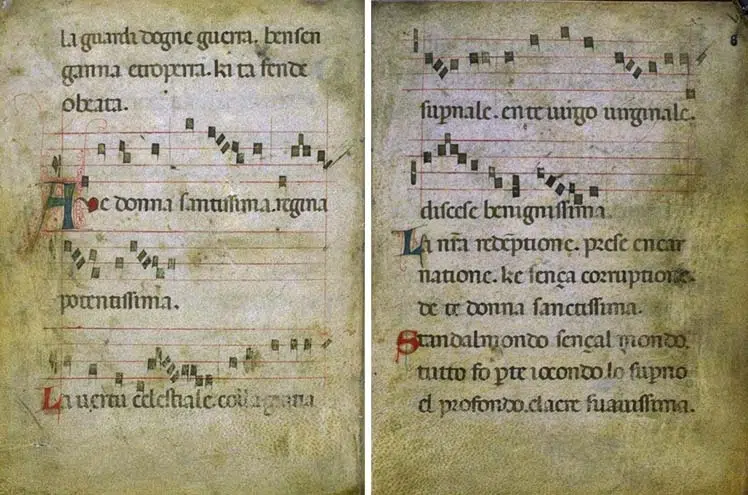 la guardi dogne guerra. bensen
ganna etroperra. ki ta fende
obeata.
Aue donna santissima. regina
potentissima.
La uertu celestiale. colla grana
8
sup̱nale. en te uirgo uirginale.
discese benignissima.
La nr̃a redẽptione. prese encar
natione. ke sença corruptione.
de te donna sanctissima.
Standalmondo sençal mondo.
tutto fo p̱te iocondo lo sup̱no
el profondo. elaere suauissima.